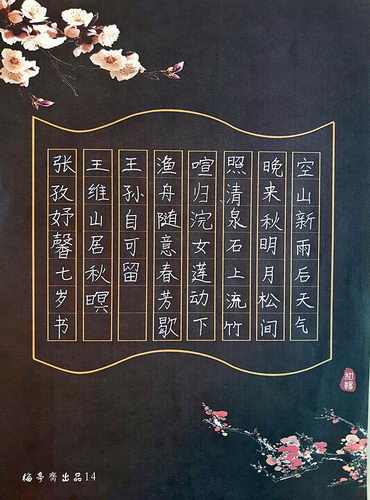 空山新雨后天气
晚来秋明月松间
照清泉石上流竹
喧归浣女莲动下
渔舟随意春芳歇
王孙自可留
王维山居秋暝
张孜妤馨七岁书
出品14